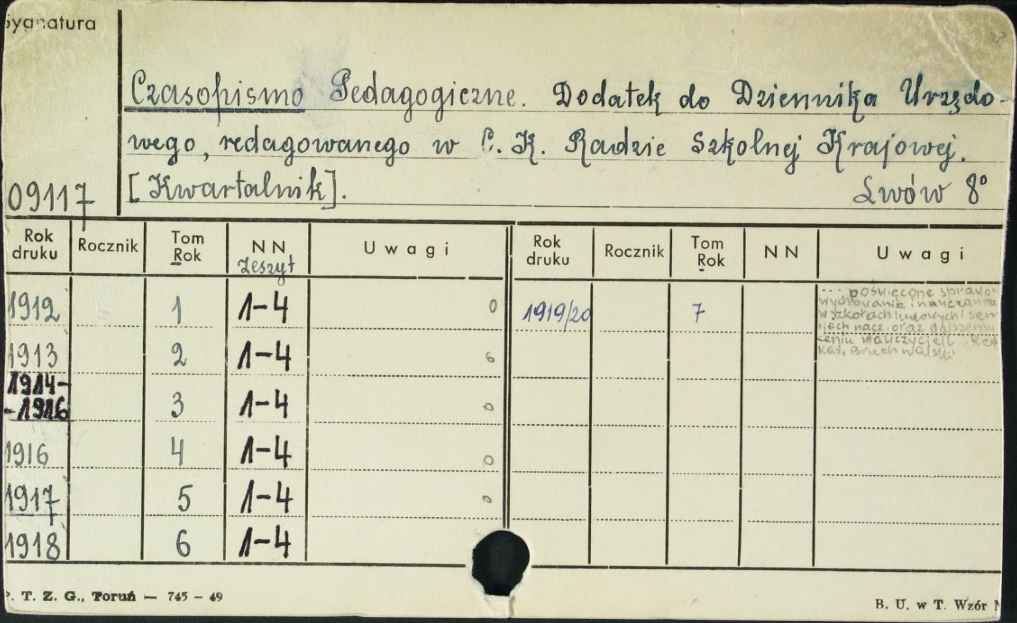 Sygnatura
Czasopismo Pedagogiczne. Dodatek do Dziennika Urzędo-
wego, redagowanego w C. K. Radzie Szkolnej Krajowej.
09117 [Kwartalnik]. Lwów 8°
Rok druku Rocznik Tom Rok NN Zeszyt Uwagi Rok druku Rocznik Tom Rok NN Uwagi
1912 1 1-4 0 1919/20 7
1913 2 1-4 6
1914-
-1916 3 1-4 0
1916 4 1-4 0
1917 5 1-4 0
1918 6 1-4
... poświęcone sprawom
wychowania i nauczania
w szkołach ludowych i sem
nacz. oraz
ceniu nauczycieli. Red.
P. T. Z. G., Toruń — 745 - 49
B. U. w T. Wzór